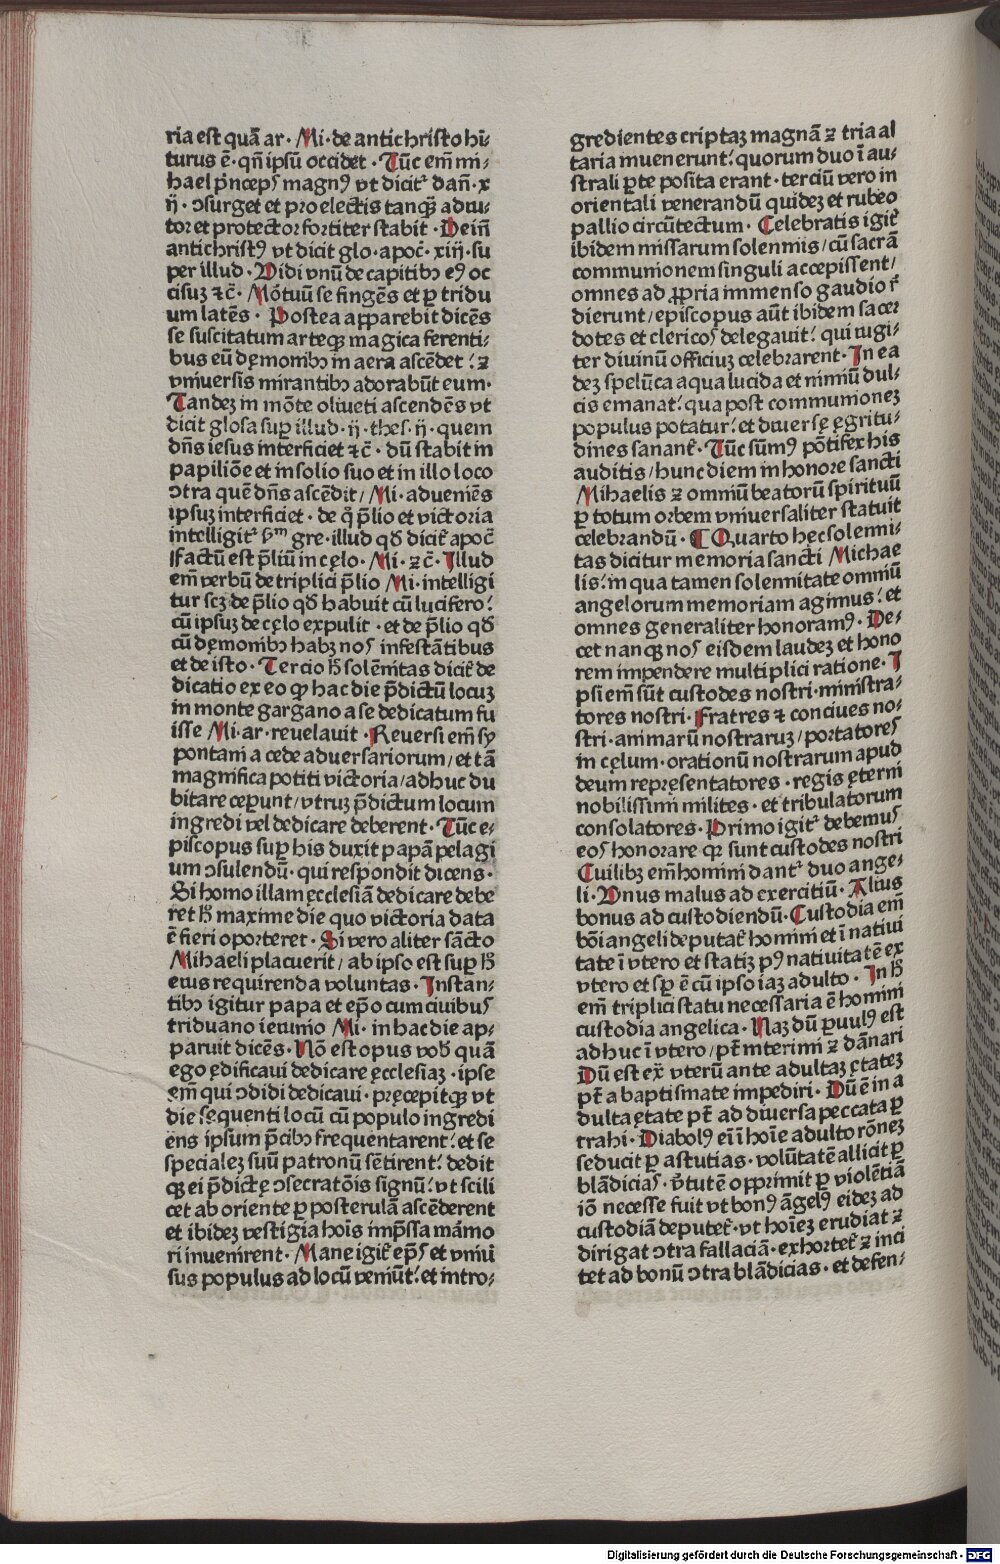 ria est quā ar· Mi· de antichristo hīturus ē· qn̄ ipsū occidet· Tūc em̄ mi⸗
hael p̄nceps magnꝰ vt dicit᷑ dan̄· x
ij· ↄsurget et pro electis tanqꝫ adiu⸗
tor et protector fortiter stabit· Dein̄
antichristꝰ vt dicit glo· apoc̄· xiij· su
per illud· Vidi vnū de capitibꝫ eꝰ oc
cisuꝫ ⁊c̄· Mōtuū se fingēs et ꝑ tridu
um latēs· Postea apparebit dicēs
se suscitatum arteqꝫ magica ferenti⸗
bus eū dęmonibꝫ in aera ascēdet: ⁊
vniuersis mirantibꝫ adorabūt eum·
Tandeꝫ in mōte oliueti ascendēs vt
dicit glosa suꝑ illud· ij· thes· ij· quem
dn̄s iesus interficiet ⁊c̄· dū stabit in
papiliōe et in solio suo et in illo loco
ↄtra quē dn̄s ascēdit/ Mi· adueniēs
ipsuꝫ interficiet· de qͦ p̄lio et victoria
intelligit᷑ ẜm gre· illud qd̄ dicit᷑ apoc̄
Factū est p̄liū in cęlo· Mi· ⁊c̄· Illud
em̄ verbū de triplici p̄lio Mi· intelligi
tur scꝫ de p̄lio qd̄ habuit cū lucifero:
cū ipsuꝫ de cęlo expulit· et de p̄lio qd̄
cū dęmonibꝫ habꝫ nos infestātibus
et de isto· Tercio h̄ solēnitas dicit᷑ de
dicatio ex eo ꝙ hac die p̄dictū locuꝫ
in monte gargano a se dedicatum fu
isse Mi· ar· reuelauit· Reuersi em̄ sy
pontani a cede aduersariorum/ et tā
magnifica potiti victoria/ adhuc du
bitare cęperunt/ vtruꝫ p̄dictum locum
ingredi vel dedicare deberent· Tūc e⸗
piscopus suꝑ his duxit papā pelagi
um ↄsulendū· qui respondit dicens·
Si homo illam ęcclesiā dedicare debe
ret h̄ maxime die quo victoria data
ē fieri oporteret· Si vero aliter sācto
Mihaeli placuerit/ ab ipso est suꝑ h̄
eius requirenda voluntas· Instan⸗
tibꝫ igitur papa et ep̄o cum ciuibus
triduano ieiunio Mi· in hac die ap⸗
paruit dicēs· Nō est opus vob̄ quā
ego ędificaui dedicare ęcclesiaꝫ· ipse
em̄ qui ↄdidi dedicaui· pręcepitqꝫ vt
die sequenti locū cū populo ingredi
ens ipsum p̄cibꝫ frequentarent: et se
specialeꝫ suū patronū sētirent: dedit
qꝫ ei p̄dictę ↄsecratōis signū: vt scili
cet ab oriente ꝑ posterulā ascēderent
et ibideꝫ vestigia hoīs imp̄ssa mārmo
ri inuenirent· Mane igit᷑ ep̄s et vniū
sus populus ad locū veniūt: et intro⸗
gredientes criptaꝫ magnā ⁊ tria al
taria inuenerunt: quorum duo ī au⸗
strali ꝑte posita erant· terciū vero in
orientali venerandū quideꝫ et rubeo
pallio circūtectum· Celebratis igit᷑
ibidem missarum solenniis/ cū sacrā
communionem singuli accepissent/
omnes ad ꝓpria immenso gaudio r̄
dierunt/ episcopus aūt ibidem sacer
dotes et clericos delegauit: qui iugi⸗
ter diuinū officiuꝫ celebrarent· In ea
deꝫ spelūca aqua lucida et nimiū dul⸗
cis emanat: qua post communioneꝫ
populus potatur: et diuersę ęgritu⸗
dines sanant᷑· Tūc sūmꝰ pōtifex his
auditis/ hunc diem in honore sancti
Mihaelis ⁊ omniū beatorū spirituū
ꝑ totum orbem vniuersaliter statuit
celebrandū· ¶ Quarto hęc solenni⸗
tas dicitur memoria sancti Michae
lis: in qua tamen solennitate omniū
angelorum memoriam agimus: et
omnes generaliter honoramꝰ· De⸗
cet nanqꝫ nos eisdem laudeꝫ et hono
rem impendere multiplici ratione· I
psi em̄ sūt custodes nostri· ministra⸗
tores nostri· Fratres ⁊ conciues no⸗
stri· animarū nostraruꝫ/ portatores
in cęlum· orationū nostrarum apud
deum repręsentatores· regis ęterni
nobilissimi milites· et tribulatorum
consolatores· Primo igit᷑ debemus
eos honorare qꝛ sunt custodes nostri
Cuilibꝫ em̄ homini dant᷑ duo ange⸗
li· Vnus malus ad exercitiū· Alius
bonus ad custodiendū· Custodia em̄
bōi angeli deputat᷑ homini et ī natiui
tate ī vtero et statiꝫ pꝰ natiuitatē ex
vtero et sꝑ ē cū ipso iaꝫ adulto· In h̄
em̄ triplici statu necessaria ē homini
custodia angelica· Naꝫ dū ꝑuulꝰ est
adhuc ī vtero/ pt̄ interimi ⁊ dānari
Dū est ex̄ vterū ante adultaꝫ ętateꝫ
pt̄ a baptismate impediri· Dū ē in a
dulta ętate pt̄ ad diuersa peccata ꝑ
trahi· Diabolꝰ ei ī hoīe adulto rōneꝫ
seducit ꝑ astutias· volūtatē allicit ꝑ
blādicias· v̄tutē opprimit ꝑ violētiā
iō necesse fuit vt bonꝰ āgelꝰ eideꝫ ad
custodiā deputet᷑· vt hoīeꝫ erudiat ⁊
dirigat ↄtra fallaciā· exhortet᷑ ⁊ inci
tet ad bonū ↄtra blādicias· et defen⸗
Digitalisierung gefördert durch die Deutsche Forschungsgemeinschaft · DFG